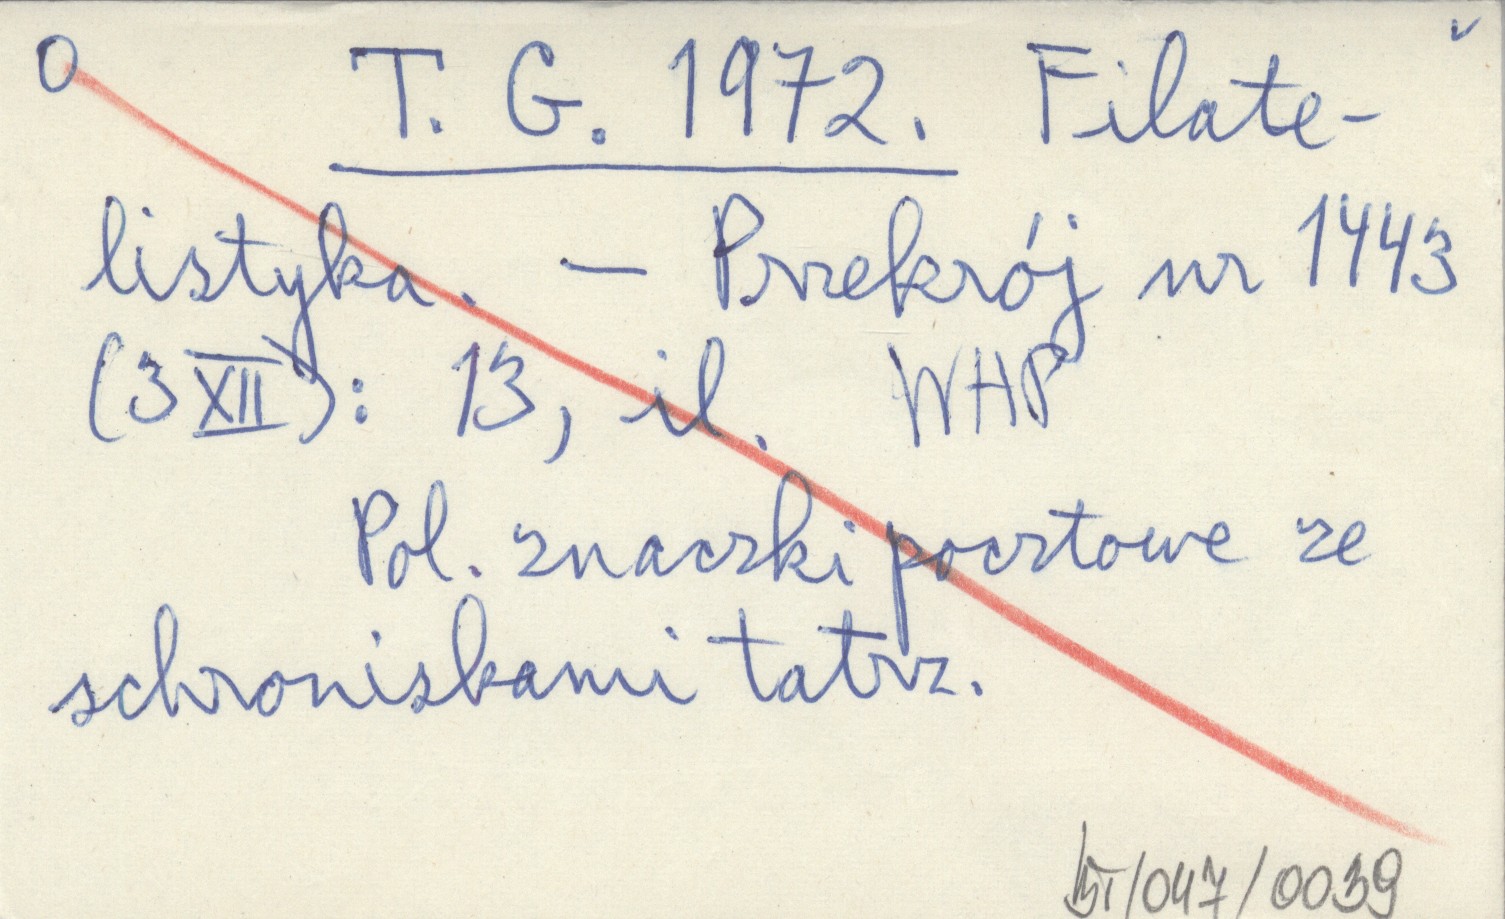 O T. G. 1972. Filate-
listyka. — Przekrój nr 1443
(3 XII): 13, il. WHP
Pol. znaczki pocztowe ze
schroniskami tatrz.
/047/0039